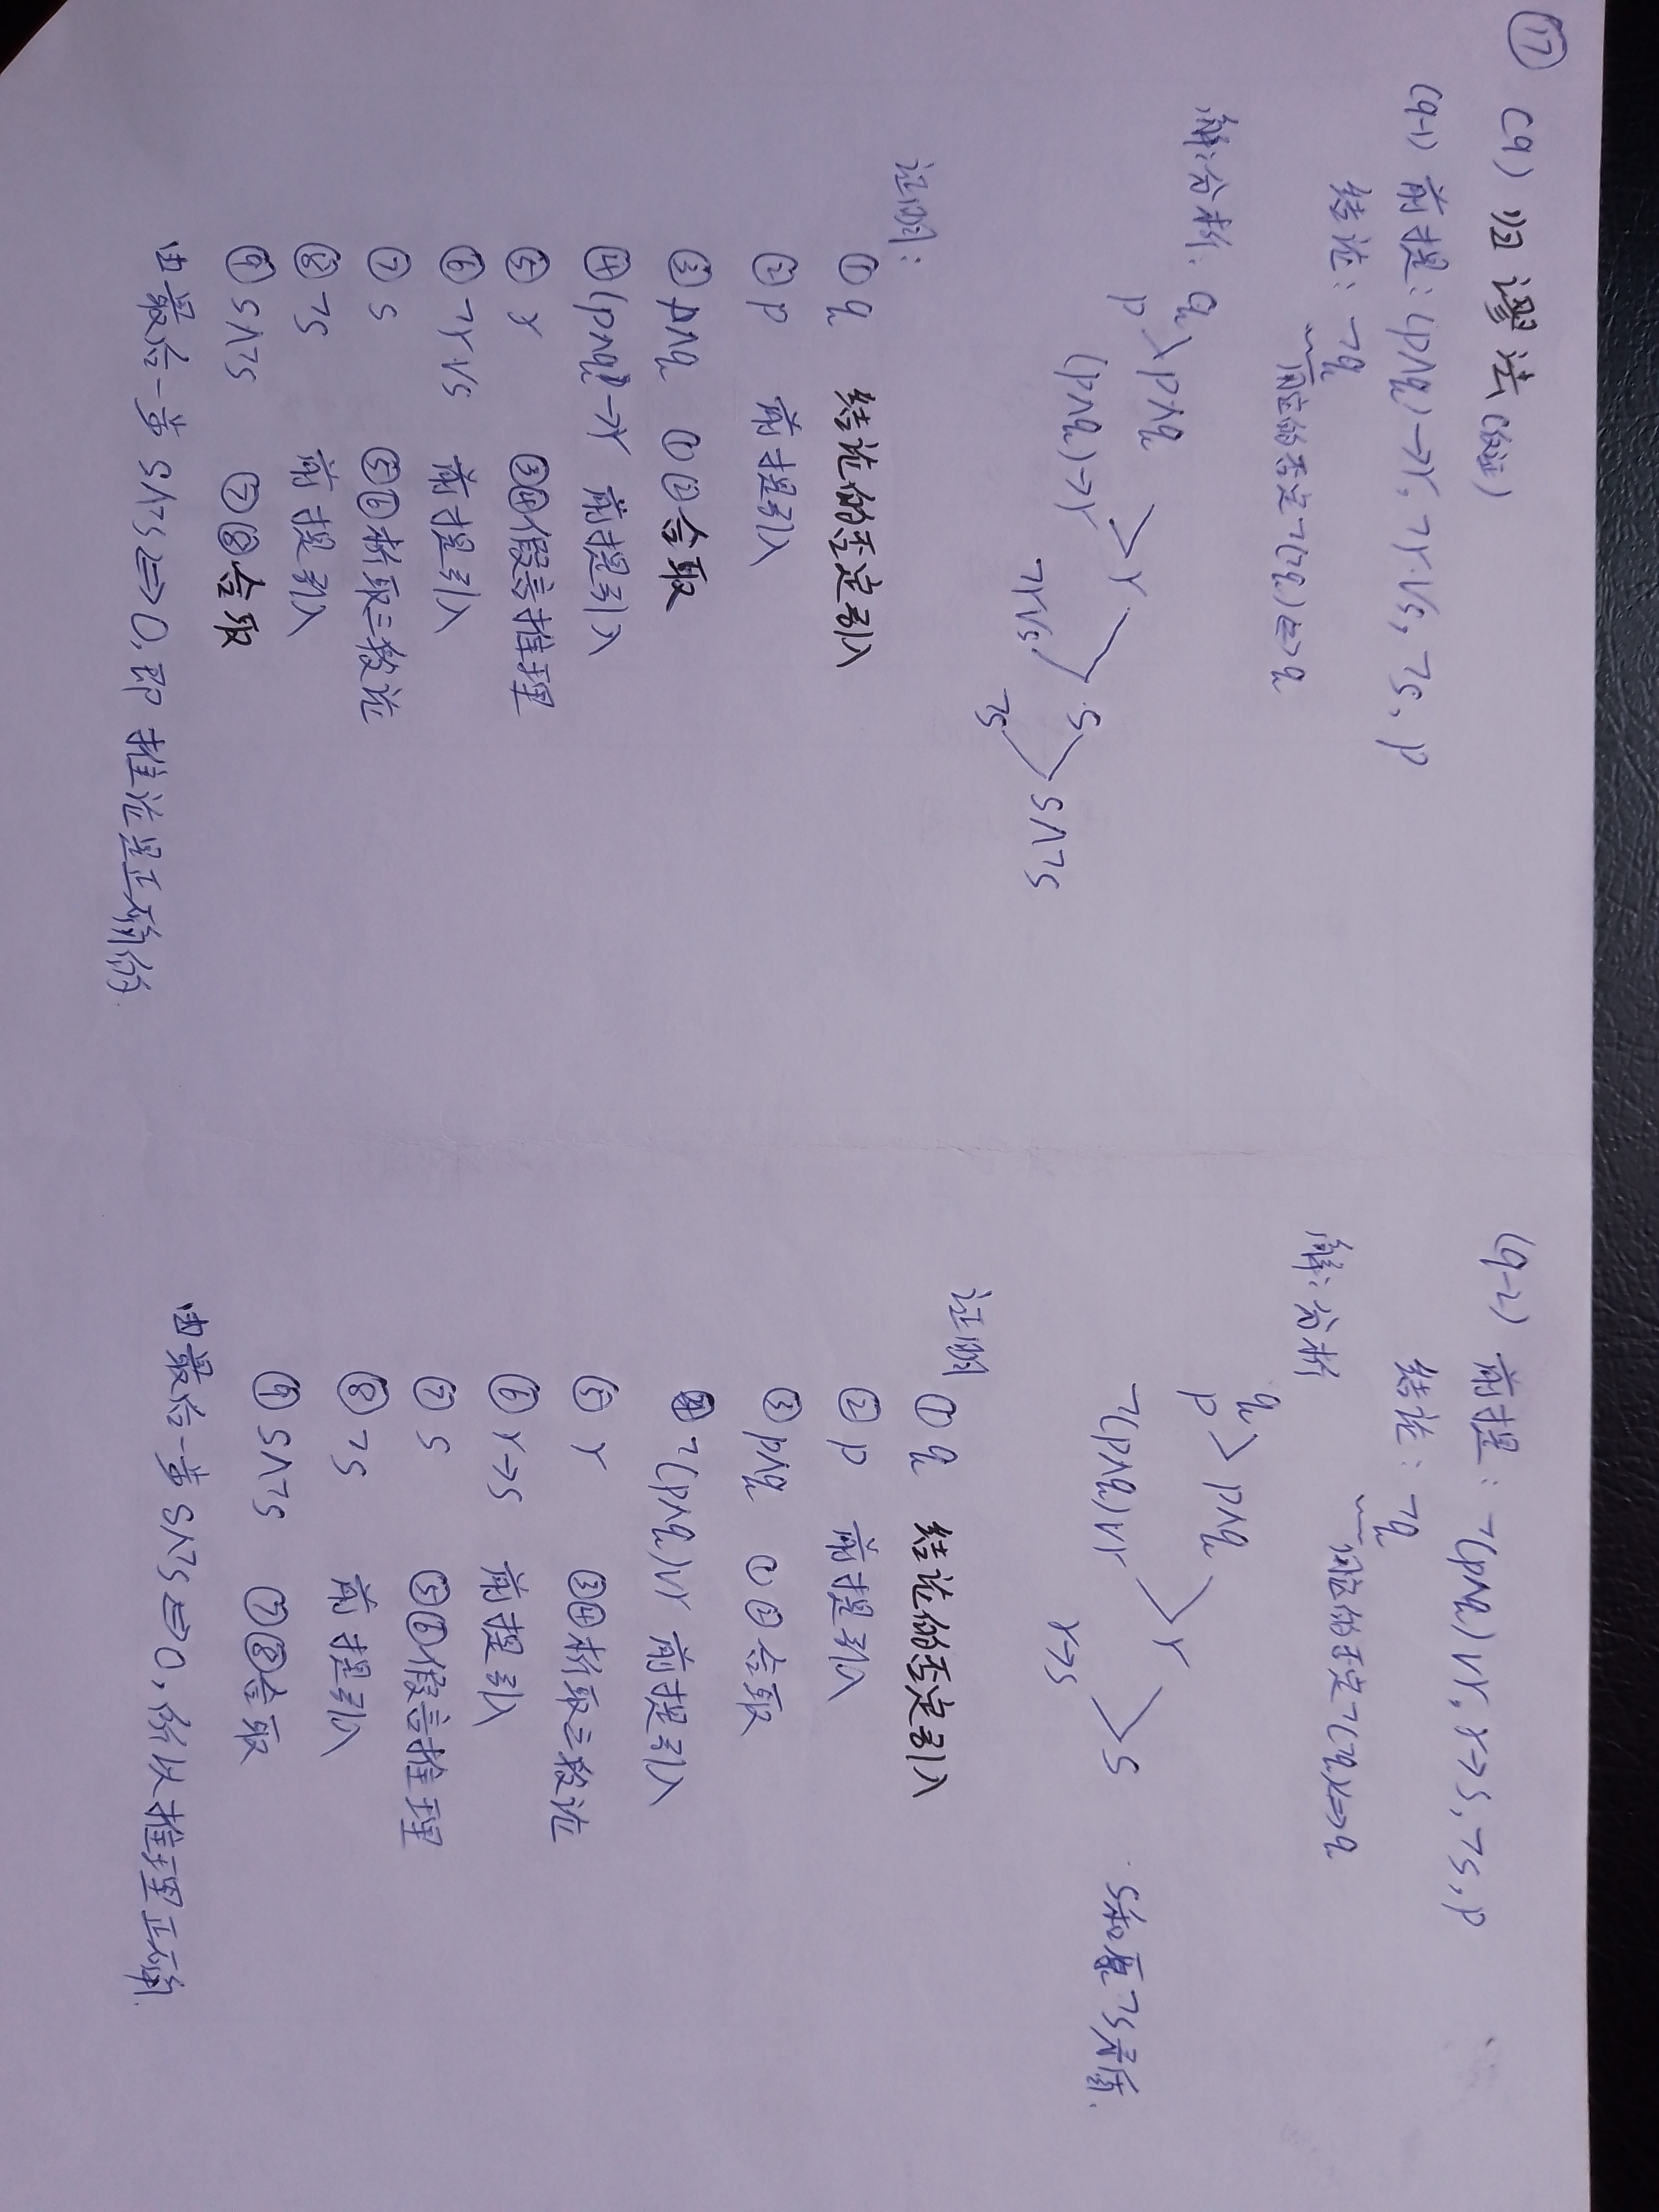 ⑰
(9) 归谬法(反证)
(9-1) 前提: (p∧q)→r, ¬r∨s, ¬s, p
结论: ¬q
用它的否定¬(¬q)⇔q
解:分析:
q
p
p∧q
(p∧q)→r
r
¬r∨s
s
¬s
s∧¬s
证明:
① q 结论的否定引入
② p 前提引入
③ p∧q ①②合取
④ (p∧q)→r 前提引入
⑤ r ③④假言推理
⑥ ¬r∨s 前提引入
⑦ s ⑤⑥析取三段论
⑧ ¬s 前提引入
⑨ s∧¬s ⑦⑧合取
由最后一步 s∧¬s⇔0,即推论是正确的.
(9-2) 前提: ¬(p∧q)∨r, r→s, ¬s, p
结论: ¬q
用它的否定¬(¬q)⇔q
解:分析
q
p
p∧q
¬(p∧q)∨r
r
r→s
s
s和原¬s矛盾.
证明
① q 结论的否定引入
② p 前提引入
③ p∧q ①②合取
④ ¬(p∧q)∨r 前提引入
⑤ r ③④析取三段论
⑥ r→s 前提引入
⑦ s ⑤⑥假言推理
⑧ ¬s 前提引入
⑨ s∧¬s ⑦⑧合取
由最后一步 s∧¬s⇔0,所以推理正确.